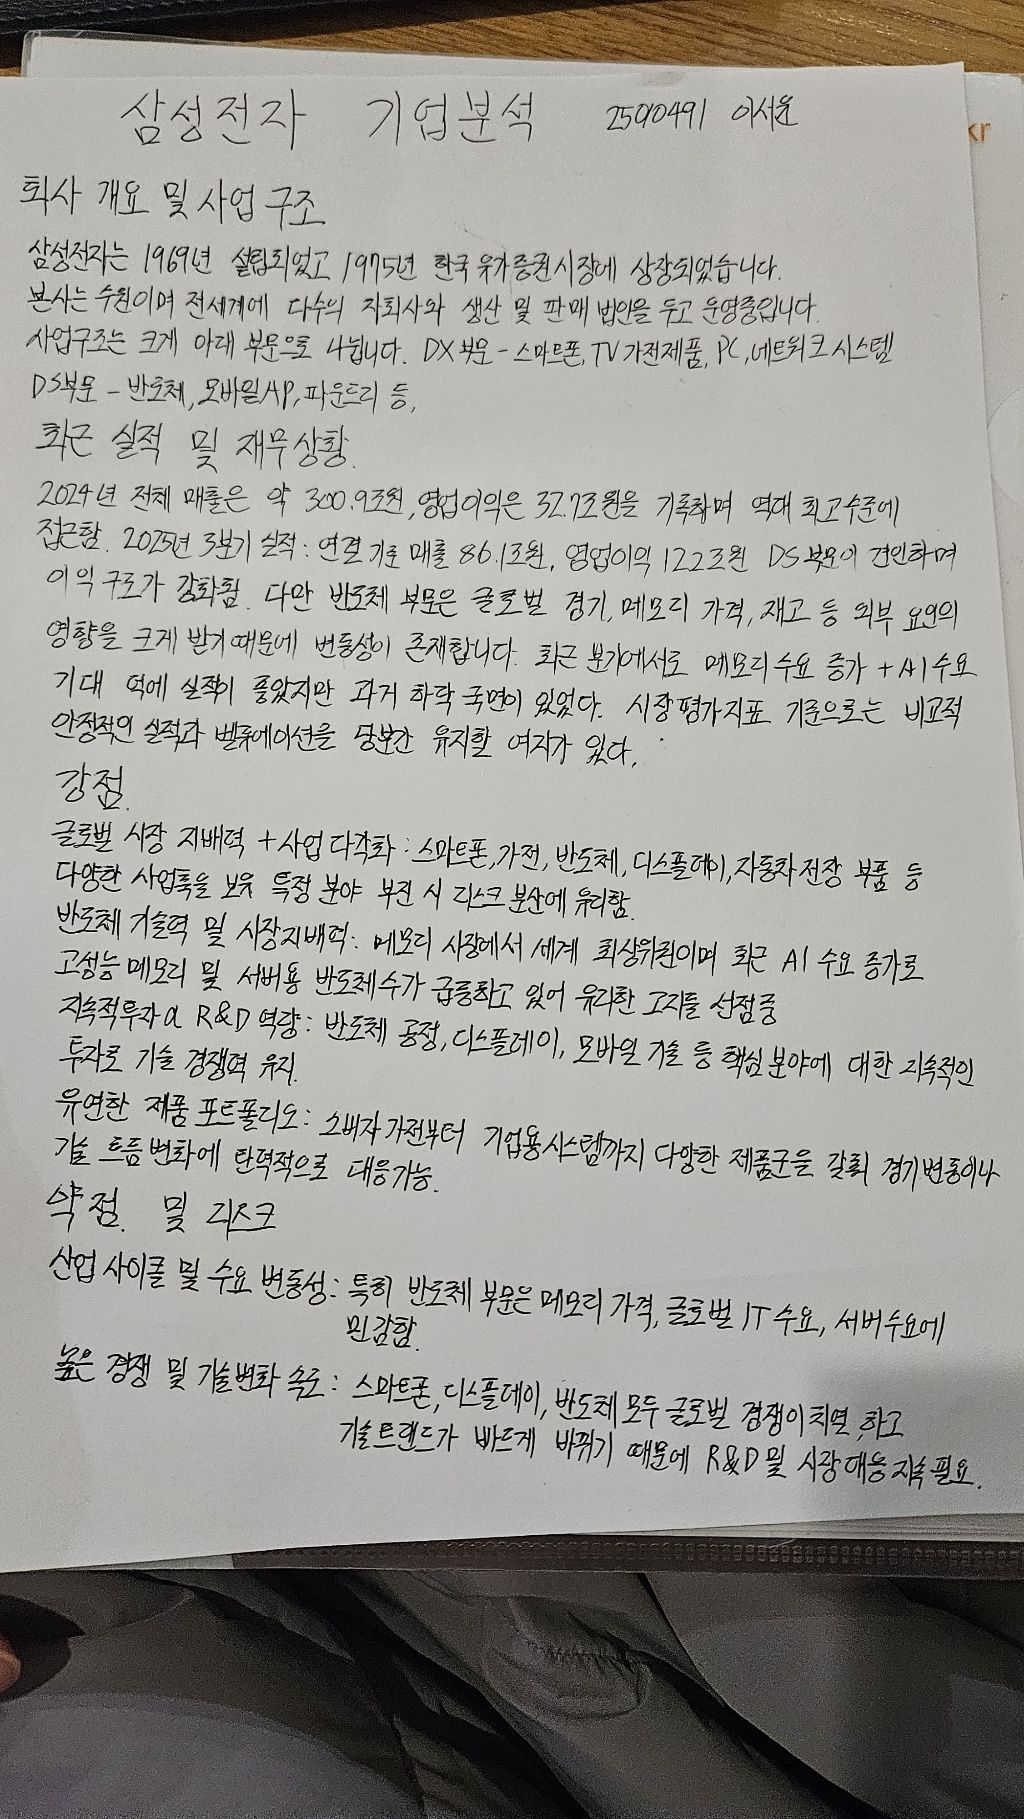 삼성전자 기업분석 25010491 이서윤
kr
회사 개요 및 사업 구조
삼성전자는 1969년 설립되었고 1975년 한국 유가증권시장에 상장되었습니다.
본사는 수원이며 전세계에 다수의 자회사와 생산 및 판매 법인을 두고 운영중입니다.
사업구조는 크게 아래 부문으로 나뉩니다. DX부문 - 스마트폰, TV가전제품, PC, 네트워크 시스템
DS부문 - 반도체, 모바일AP, 파운드리 등,
최근 실적 및 재무상황.
2024년 전체 매출은 약 300.9조원, 영업이익은 32.7조원을 기록하며 역대 최고수준에
접근함. 2025년 3분기 실적 : 연결기준 매출 86.1조원, 영업이익 12.2조원 DS부문이 견인하며
이익 구조가 강화됨. 다만 반도체 부문은 글로벌 경기, 메모리 가격, 재고 등 외부 요인의
영향을 크게 받기 때문에 변동성이 존재합니다. 최근 분기에서도 메모리수요 증가 + AI수요
기대 덕에 실적이 좋았지만 과거 하락 국면이 있었다. 시장평가지표 기준으로는 비교적
안정적인 실적과 밸류에이션을 당분간 유지할 여지가 있다.
강점.
글로벌 시장 지배력 + 사업 다각화 : 스마트폰, 가전, 반도체, 디스플레이, 자동차 전장 부품 등
다양한 사업축을 보유 특정 분야 부진 시 리스크 분산에 유리함.
반도체 기술력 및 시장지배력: 메모리 시장에서 세계 최상위권이며 최근 AI 수요 증가로
고성능 메모리 및 서버용 반도체수가 급등하고 있어 유리한 고지를 선점중
지속적투자와 R&D 역량 : 반도체 공정, 디스플레이, 모바일 기술 등 핵심 분야에 대한 지속적인
투자로 기술 경쟁력 유지.
유연한 제품 포트폴리오 : 소비자 가전부터 기업용시스템까지 다양한 제품군을 갖춰 경기변동이나
기술 흐름변화에 탄력적으로 대응가능.
약점. 및 리스크
산업 사이클 및 수요 변동성 : 특히 반도체 부문은 메모리 가격, 글로벌 IT 수요, 서버수요에
민감함.
높은 경쟁 및 기술변화 속도 : 스마트폰, 디스플레이, 반도체 모두 글로벌 경쟁이치열,하고
기술트렌드가 빠르게 바뀌기 때문에 R&D 및 시장대응 지속 필요.